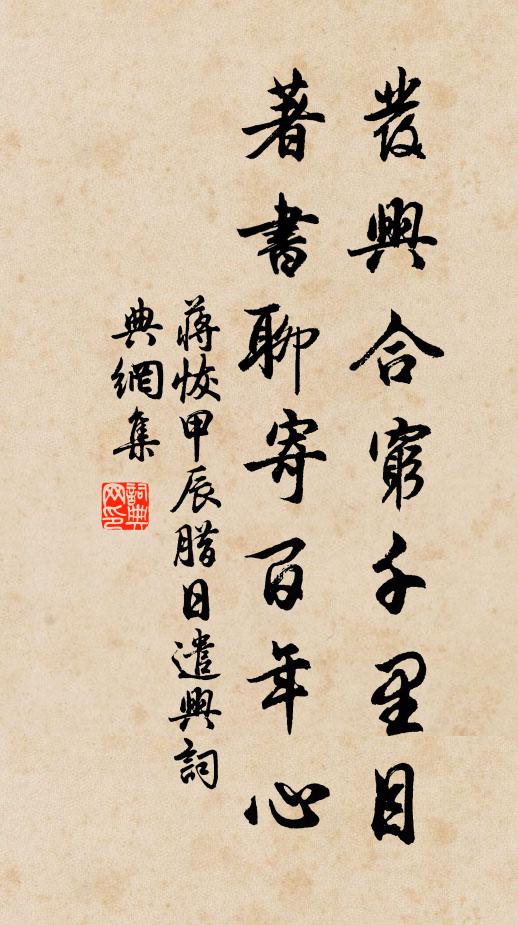 發興合窮千里目
著書聊寄百年心
蔣恢甲辰腊日遣興詞
典網集
詞典網印